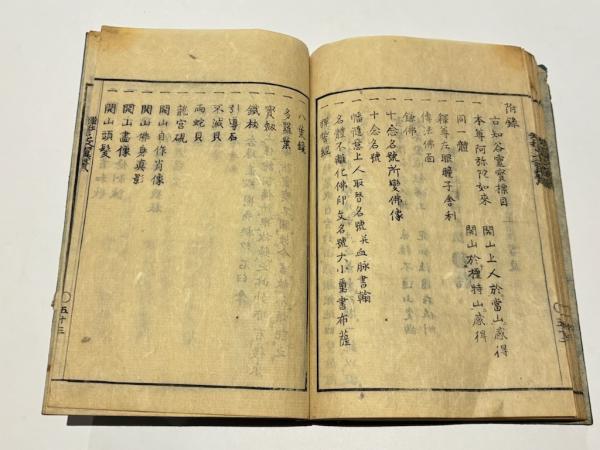 附錄
古知谷靈寶標目
本尊阿弥陀如來 開山上人於當山感得
一同體 開山於檀特山感得
一釋尊左眼瞳子舎利
一傳法佛面
一鎔佛
一十念名号所變佛像
一十念名號
一幡随意上人取替名號并血脉書翰
一名體不離化佛印文名號大小墨書布薩
一稱讃經
一八隻鏡
一多羅葉
一寶劔
一鐵杖
一引導石
一不滅貝
一兩蛇貝
一龍宮硯
一開山自作肖像
一開山佛身真影
一開山畫像
一開山頭髪
五十三